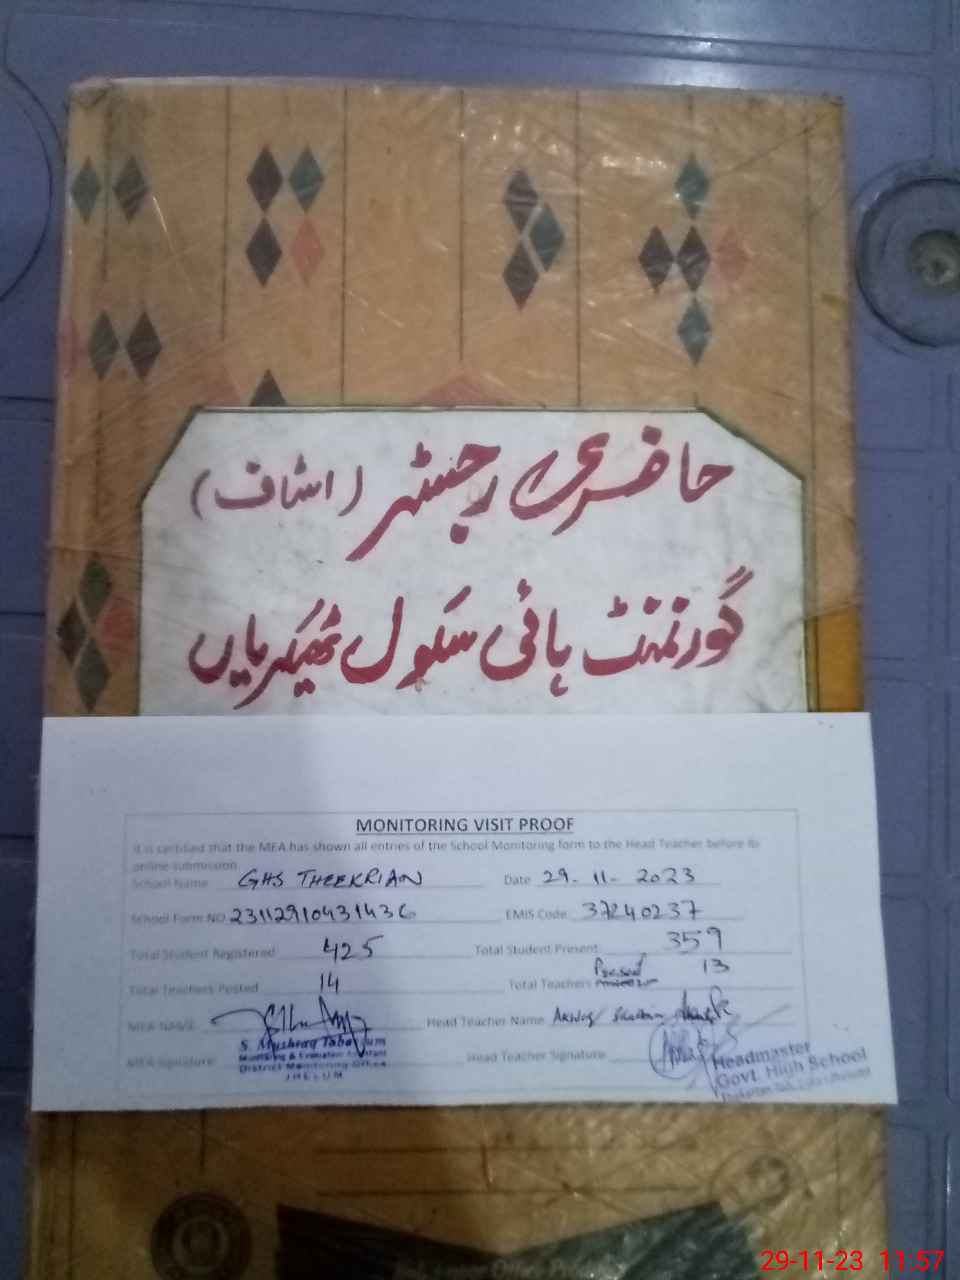 حاضری رجسٹر (اسٹاف)
گورنمنٹ ہائی سکول ٹھیکریاں
MONITORING VISIT PROOF
It is certified that the MEA has shown all entries of the School Monitoring form to the Head Teacher before its
online submission
School Name GHS THEEKRIAN Date 29-11-2023
School Form NO 23112910431436 EMIS Code 37240237
Total Student Registered 425 Total Student Present 359
Total Teachers Posted 14 Total Teachers Present 13
MEA NAME Head Teacher Name
S. Mushtaq Tabassum
Monitoring & Evaluation Assistant
District Monitoring Office
JHELUM
MEA Signature Head Teacher Signature
Headmaster
Govt. High School
29-11-23 11:57